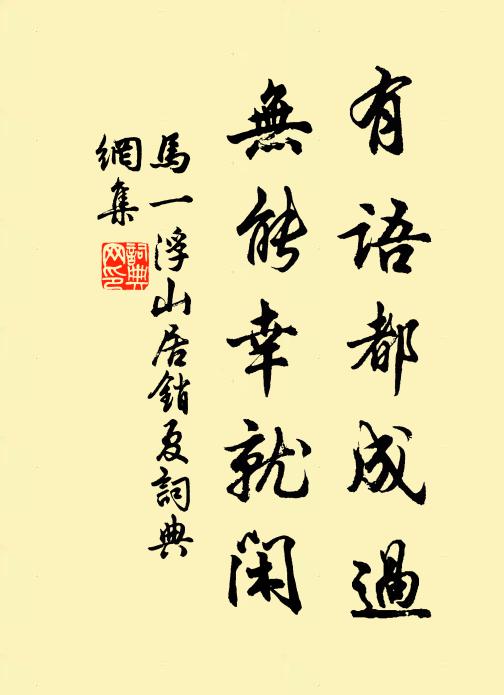 有語都成過
無能幸就閑
馬一浮山居銷夏詞典
網集
詞典網印